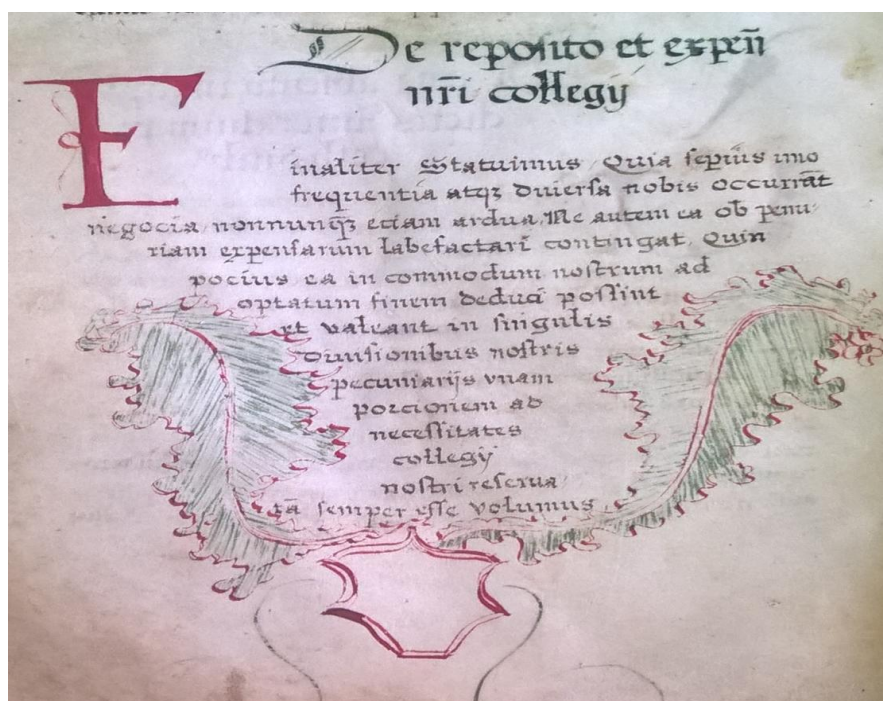 De reposito et expen̄
nr̄i collegij
Finaliter Statuimus Quia sepius imo
frequentia atqꝫ diuersa nobis occurrāt
negocia nonnunqꝫ eciam ardua Ne autem ea ob penu
riam expensarum labefactari contingat Quin
pocius ea in commodum nostrum ad
optatum finem deduci possint
et valeant in singulis
diuisionibus nostris
pecuniarijs vnam
porcionem ad
necessitates
collegij
nostri reserua
tā semper esse volumus